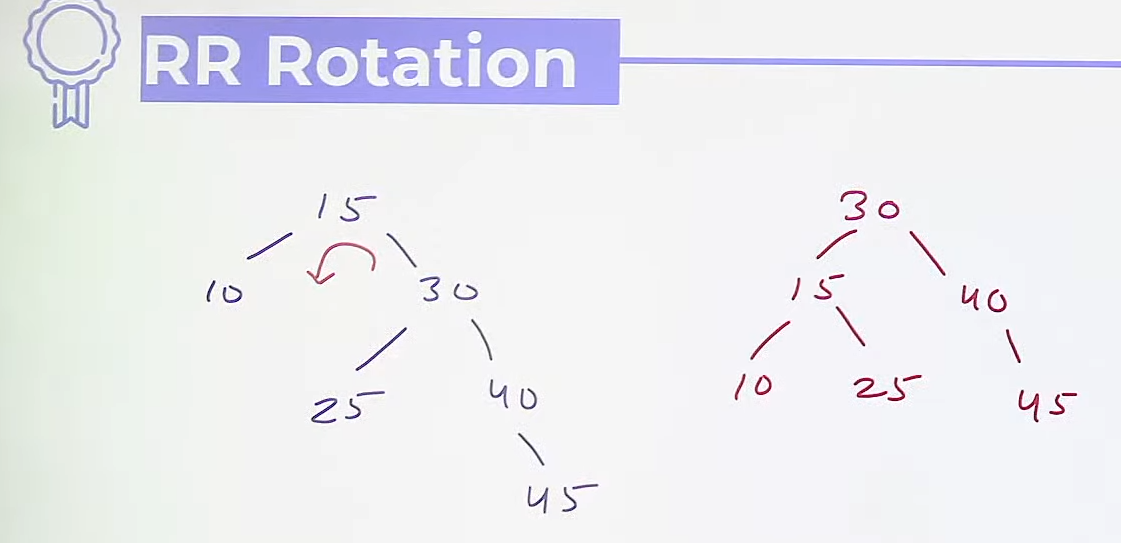 RR Rotation
15
10 30
25 40
45
30
15 40
10 25 45